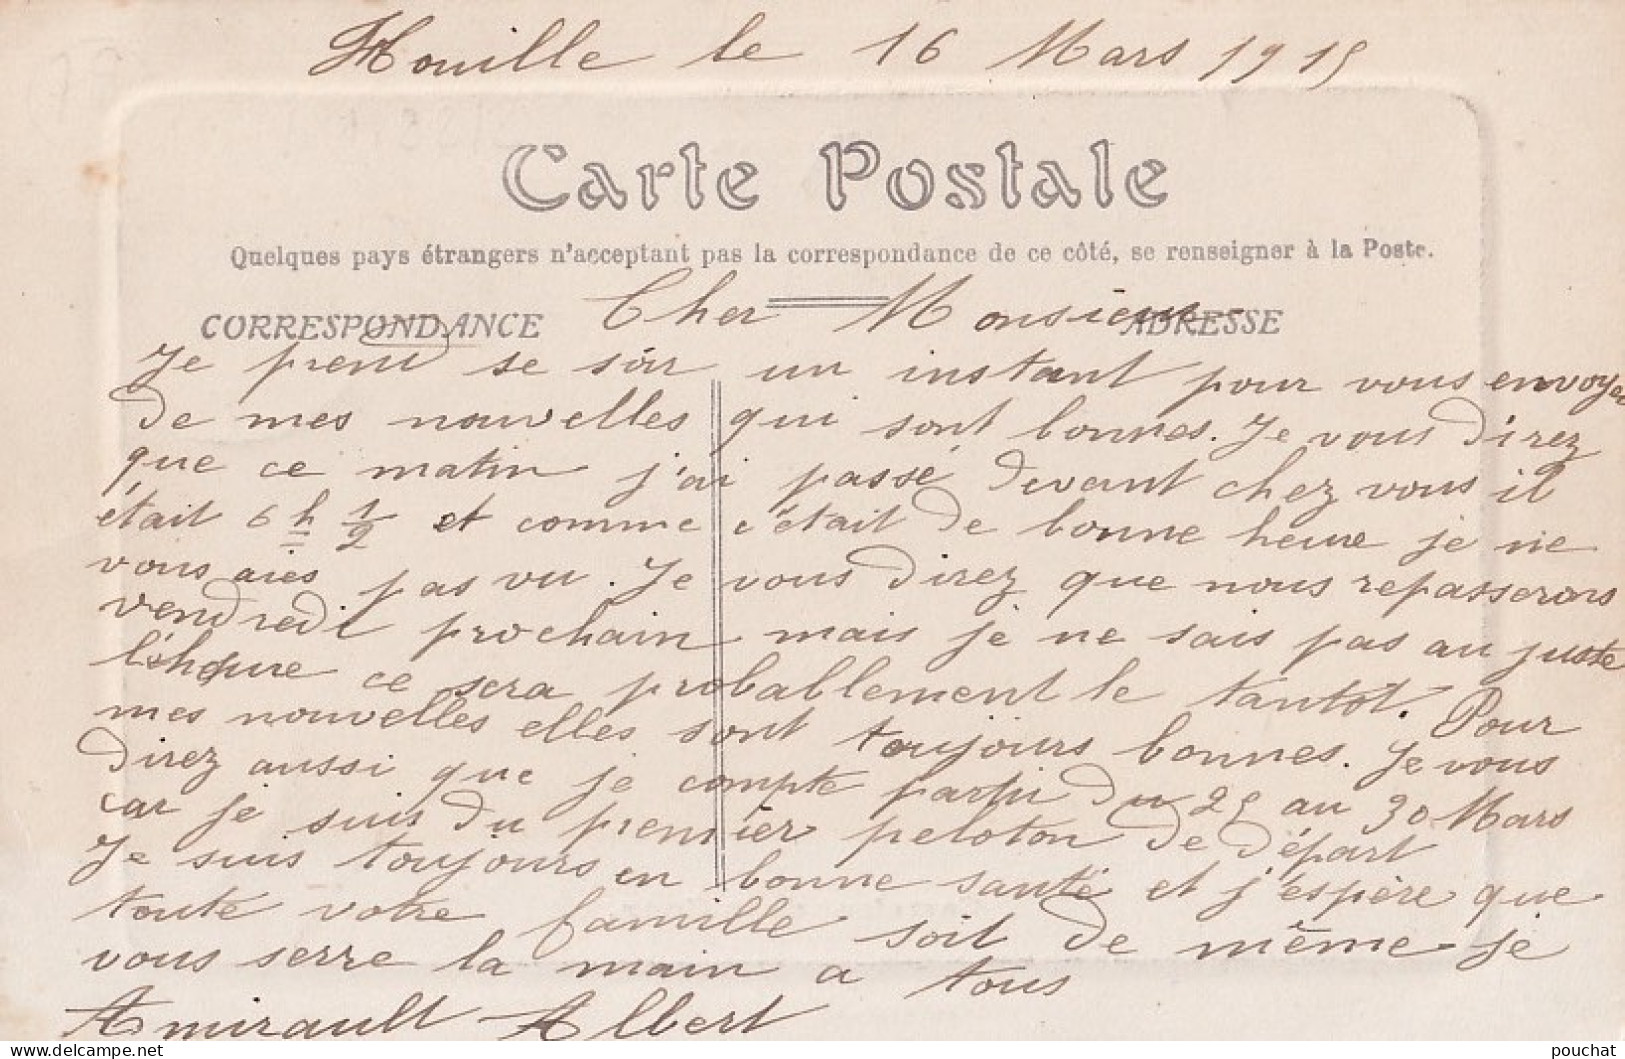 Houille le 16 Mars 1915
Carte Postale
Quelques pays étrangers n'acceptant pas la correspondance de ce côté, se renseigner à la Poste.
CORRESPONDANCE Cher Monsieur ADRESSE
Je prent se soir un instant pour vous envoyer
de mes nouvelles qui sont bonnes. Je vous direz
que ce matin j'ai passé devant chez vous il
était 6 h 1/2 et comme c'était de bonne heure je ne
vous aies pas vu. Je vous direz que nous repasserons
vendredi prochain mais je ne sais pas au juste
l'heure ce sera probablement le tantôt. Pour
mes nouvelles elles sont toujours bonnes. Je vous
direz aussi que je compte partir du 25 au 30 Mars
car je suis du premier peloton de départ
Je suis toujours en bonne santé et j'espère que
toute votre famille soit de même je
vous serre la main a tous
Amirault Albert
www.delcampe.net
pouchat